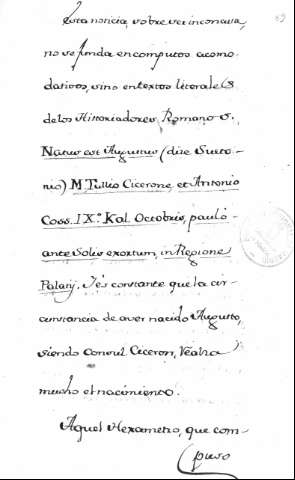 69
Esta noticia, sobre ser inconcusa,
no se funda en computos acomo-
dativos, sino en textos literales
de los Historiadores Romanos.
Natus est Augustus (dize Sueto-
nio) M. Tullio Cicerone, et Antonio
Coss. IX.º Kal. Octobris, pauló
ante Solis exortum, in Regione
Palatij. I és constante que la cir-
cunstancia de aver nacido Augusto,
siendo Consul Ciceron, realza
mucho el nacimiento.
Aquel Hexametro, que com-
puso